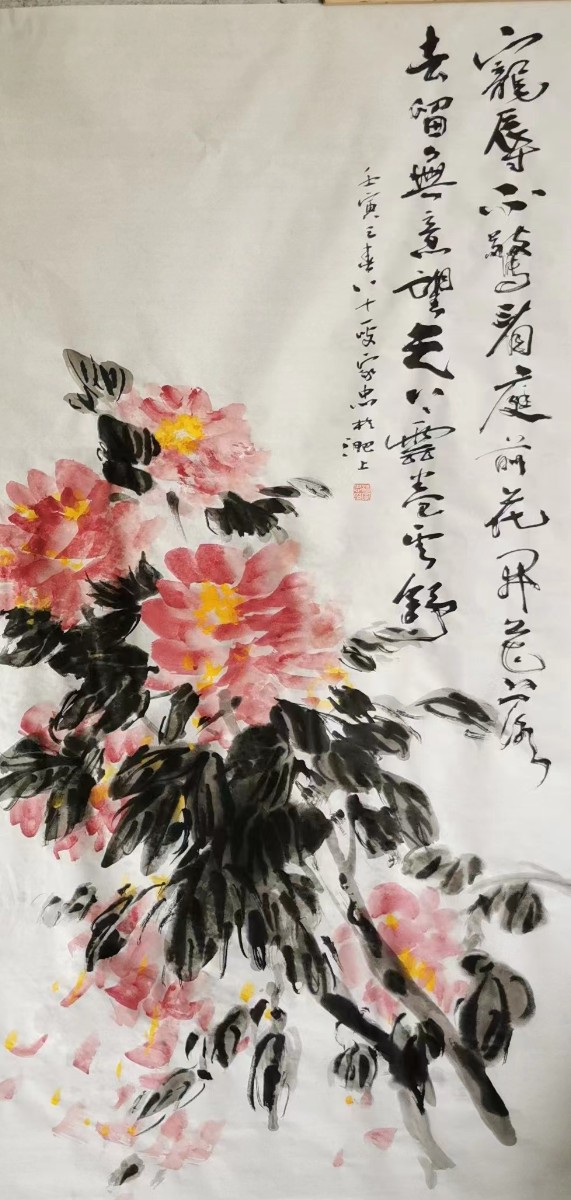 寵辱不驚看庭前花開花落
去留無意望天上雲卷云舒
壬寅之春八十叟家忠於淝上